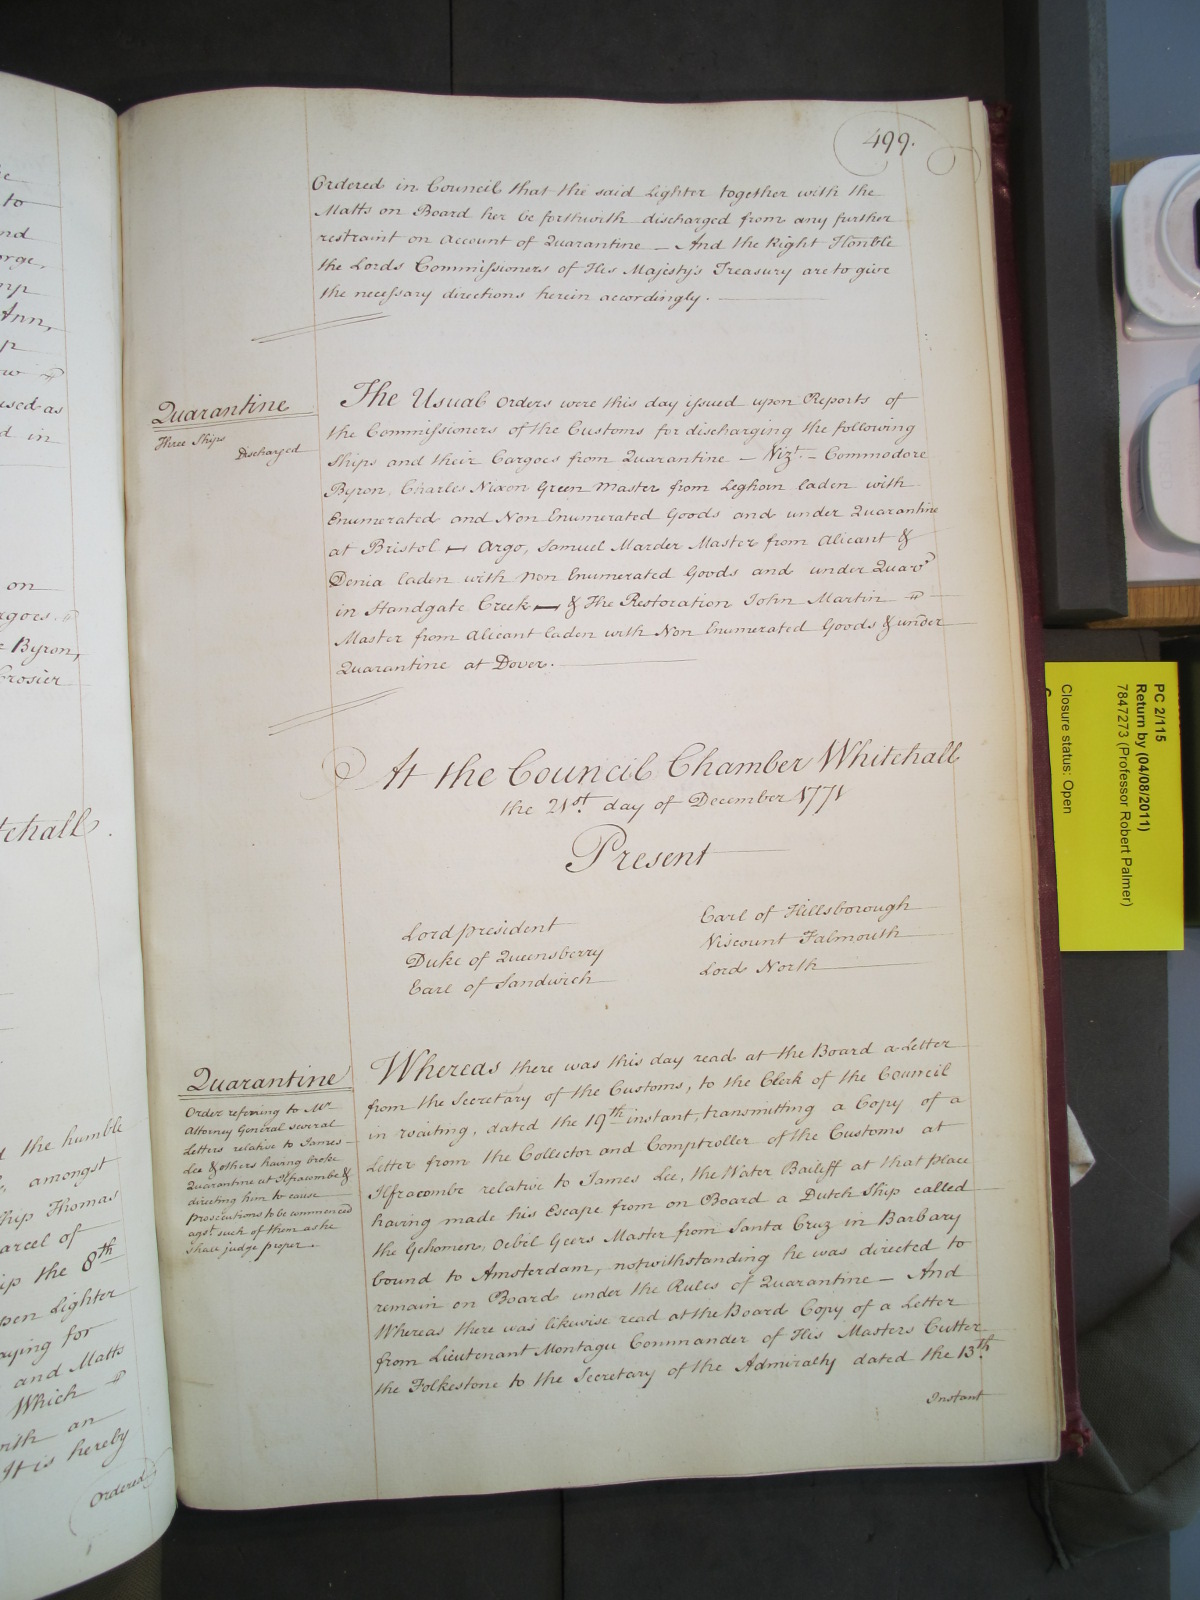 499.
Ordered in Council that the said Lighter together with the
Matts on Board her be forthwith discharged from any further
restraint on account of Quarantine — And the Right Honble
the Lords Commissioners of His Majesty's Treasury are to give
the necessary directions herein accordingly.
Quarantine
Three Ships
Discharged
The Usual Orders were this day issued upon Reports of
the Commissioners of the Customs for discharging the following
Ships and their Cargoes from Quarantine — Vizt. — Commodore
Byron, Charles Nixon Green Master from Leghorn laden with
Enumerated and Non Enumerated Goods and under Quarantine
at Bristol — Argo, Samuel Marder Master from Alicant &
Denia laden with Non Enumerated Goods and under Quar
in Standgate Creek — & The Restoration John Martin
Master from Alicant laden with Non Enumerated Goods & under
Quarantine at Dover.
At the Council Chamber Whitehall
the 21st. day of December 1771
Present
Lord president
Duke of Queensberry
Earl of Sandwich
Earl of Hillsborough
Viscount Falmouth
Lord North
Quarantine
Order refering to Mr
Attorney General several
Letters relative to James
Lee & others having broke
Quarantine at Ilfracombe &
directing him to cause
Prosecutions to be commenced
agst. such of them as he
shall judge proper.
Whereas there was this day read at the Board a Letter
from the Secretary of the Customs, to the Clerk of the Council
in waiting, dated the 19th instant, transmitting a Copy of a
Letter from the Collector and Comptroller of the Customs at
Ilfracombe relative to James Lee, the Water Bailiff at that place
having made his Escape from on Board a Dutch Ship called
the Gehomen, Oebil Geers Master from Santa Cruz in Barbary
bound to Amsterdam, notwithstanding he was directed to
remain on Board under the Rules of Quarantine — And
Whereas there was likewise read at the Board Copy of a Letter
from Lieutenant Montagu Commander of His Masters Cutter
the Folkestone to the Secretary of the Admiralty dated the 13th.
Instant
to
nd
orge,
Ann,
used as
d in
on
Byron,
Crosier
tehall.
the humble
amongst
Ship Thomas
arcel of
the 8th
Lighter
aying for
and Matts
Which
with an
It is hereby
Ordered
PC 2/115
Return by (04/08/2011)
7847273 (Professor Robert Palmer)
Closure status: Open